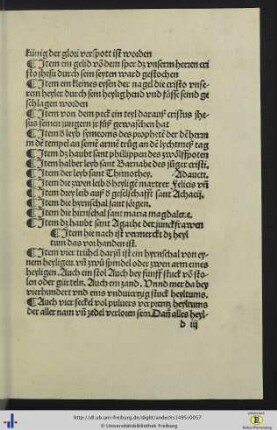 künig der glori verspott ist worden
¶ Item ein gelid vō dem sper dz vnserm herren cri
sto jhesu durch sein seyten ward gestochen
¶ Item ein kleines eysen der nagel die cristo vnse-
rem heyler durch sein heylig hend vnd füsse seind ge
schlagen worden
¶ Item von dem pecken ein teyl darauß cristus jhe-
sus seinen jungern je füß gewaschen hat
¶ Item d leyb symeonis des prophetē der dē herrn
in dē tempel an seinē armē trůg an dē lychtmeß tag
¶ Item dz haubt sant philippen des zwölffpoten
¶ Item halber leyb sant Barnabe des jüger cristi,
¶ Item der leyb sant Thimothey.
¶ Item die zwen leib d heyligē martrer Felicis vn̄ Adaucti.
¶ Item drey leib auß d gesellschafft sant Achacij.
¶ Item die hyrnschal sant jörigen.
¶ Item die hirnschal sant maria magdalene.
¶ Item dz haubt sant Agathe der junckfrawen
¶ Item hie nach ist vermerckt dz heyl
tum das vorhanden ist.
¶ Item vier trühel darin̄ ist ein hyrnschal von ey-
nem heyligen. vn̄ zwū spindel oder zwen arm eines
heyligen. Auch ein stol Auch bey fünff stuck vō sto-
len oder gürteln. Auch ein zand. Vnnd mer da bey
vierhundert vnd eins vnduierzig stuck heyltums.
¶ Auch vier seckel vol puluers verprentz heyltums
der aller nam vn̄ zedel verloren sein. Dan̄ alles heyl-
d iij
http://dl.ub.uni-freiburg.de/diglit/andechs1495/0057
© Universitätsbibliothek Freiburg